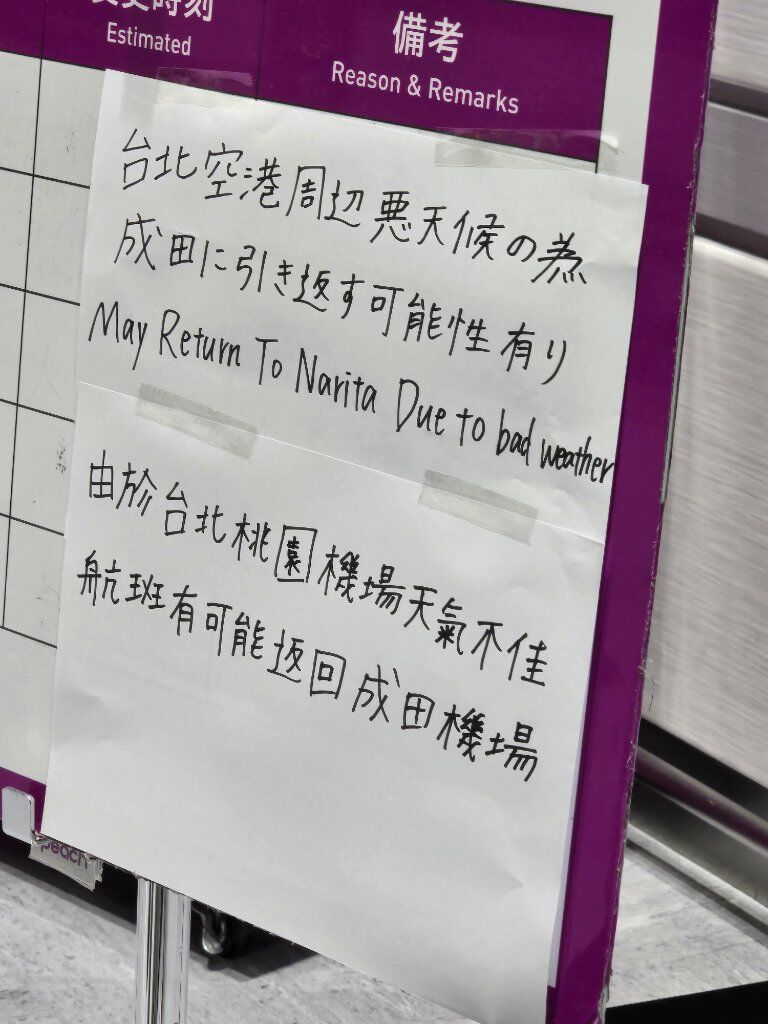 変更時刻
Estimated
備考
Reason & Remarks
台北空港周辺悪天候の為
成田に引き返す可能性有り
May Return To Narita Due to bad weather
由於台北桃園機場天氣不佳
航班有可能返回成田機場
peach